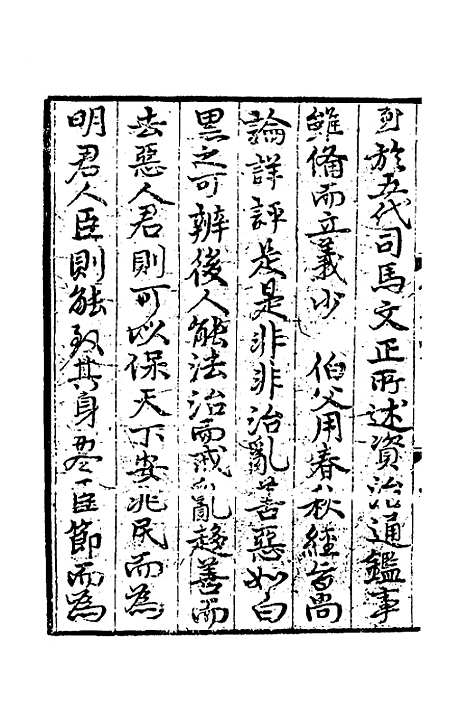 到於五代司馬文正所述資治通鑑事
雖備而立義少 伯父用春秋經旨尚
論詳評是是非非治亂善惡如白
黑之可辨後人能法治而戒亂趨善而
去惡人君則可以保天下安兆民而為
明君人臣則能致其身盡臣節而為